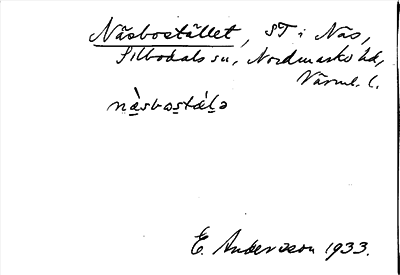 Näsbostället, ST i Näs,
Silbodals sn, Nordmarks hd,
Värml. l.
nàsbostáḷə
E. Andersson 1933.